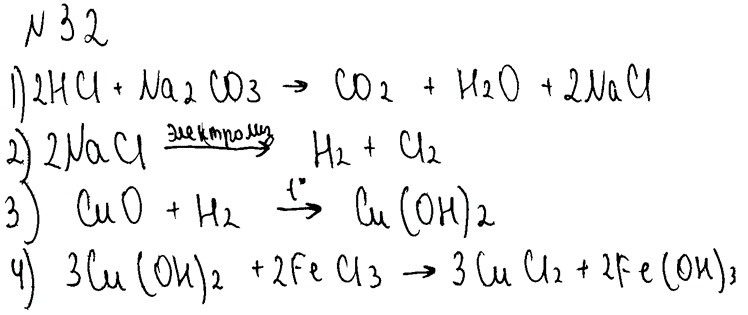 N 32
1) 2HCl + Na2CO3 → CO2 + H2O + 2NaCl
2) 2NaCl электролиз → H2 + Cl2
3) CuO + H2 t° → Cu(OH)2
4) 3Cu(OH)2 + 2FeCl3 → 3CuCl2 + 2Fe(OH)3